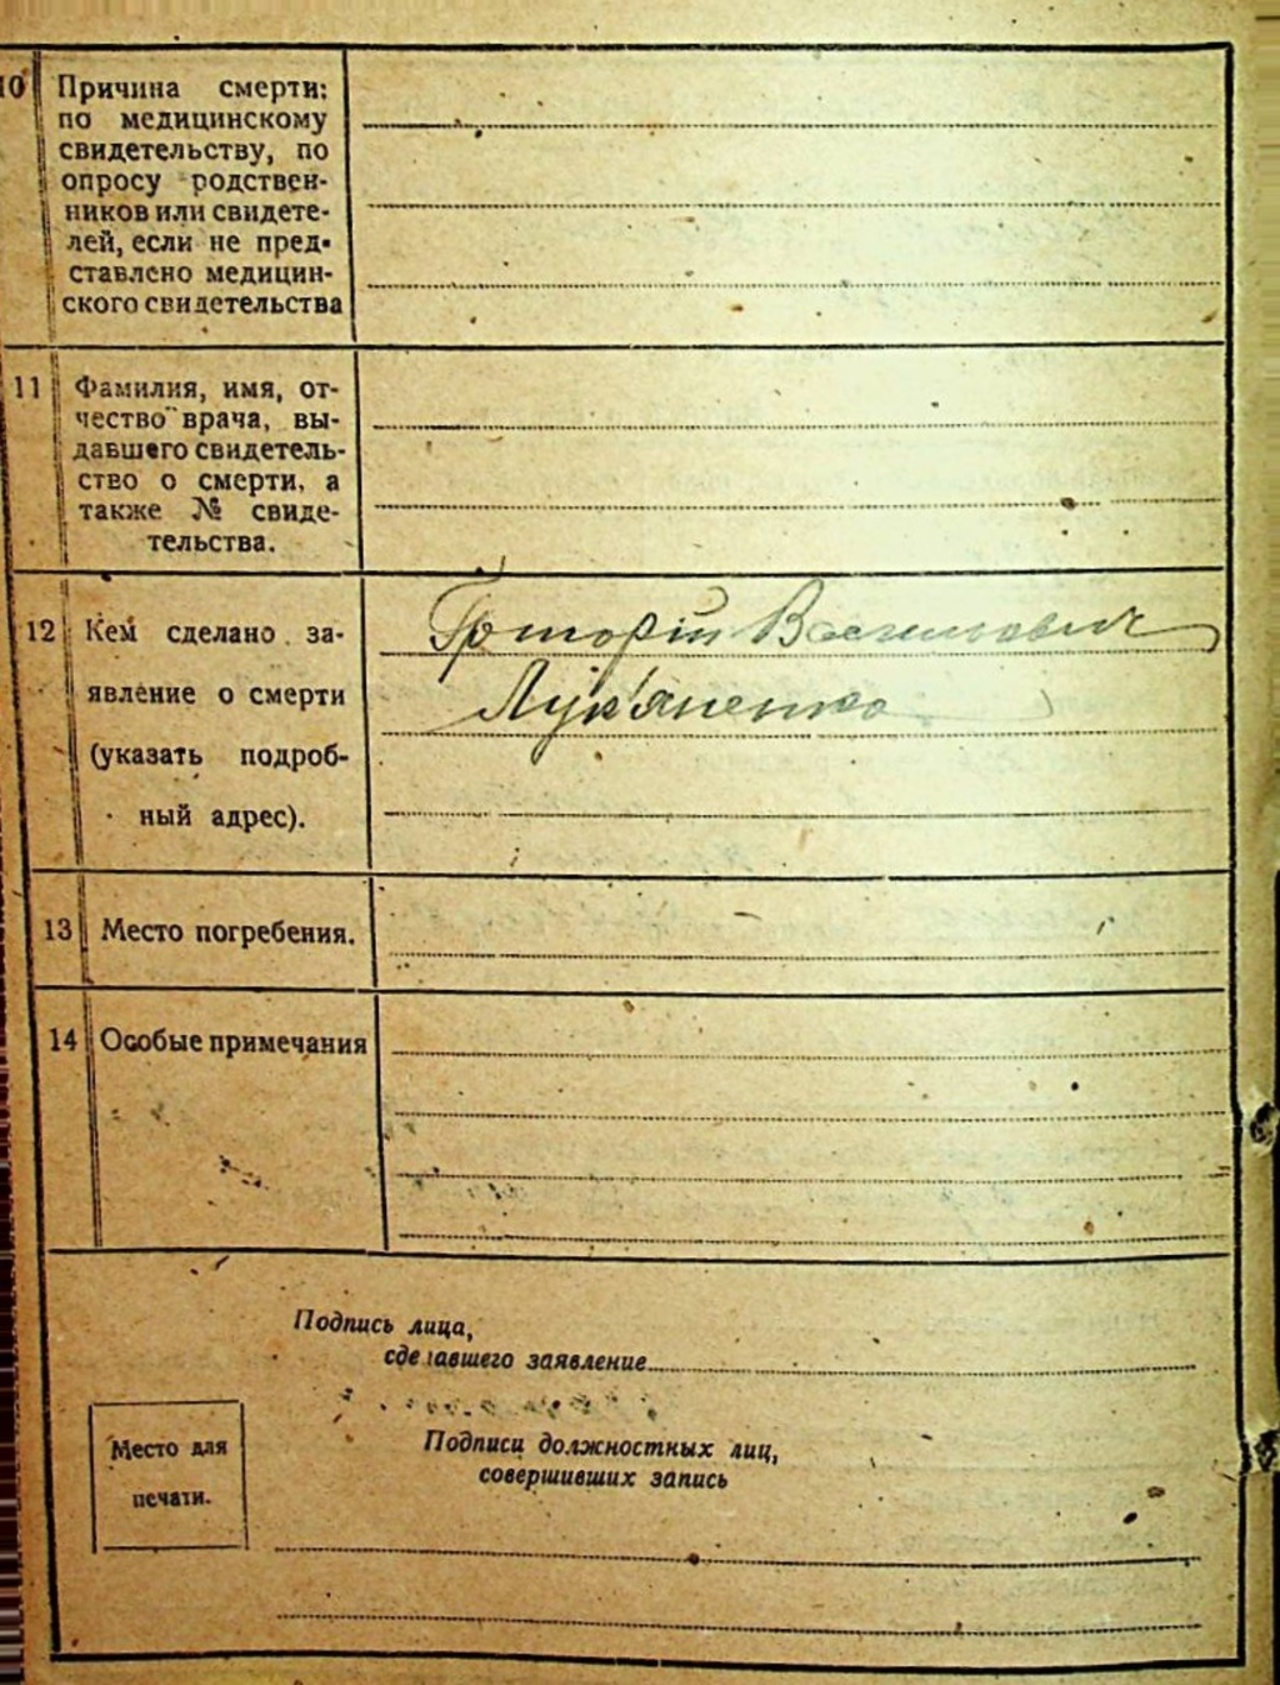 10 Причина смерти:
по медицинскому
свидетельству, по
опросу родствен-
ников или свидете-
лей, если не пред-
ставлено медицин-
ского свидетельства
11 Фамилия, имя, от-
чество врача, вы-
давшего свидетель-
ство о смерти, а
также № свиде-
тельства.
12 Кем сделано за-
явление о смерти
(указать подроб-
ный адрес).
Григорій Васильович
Лук'яненко
13 Место погребения.
14 Особые примечания
Подпись лица,
сделавшего заявление
Место для
печати.
Подписи должностных лиц,
совершивших запись